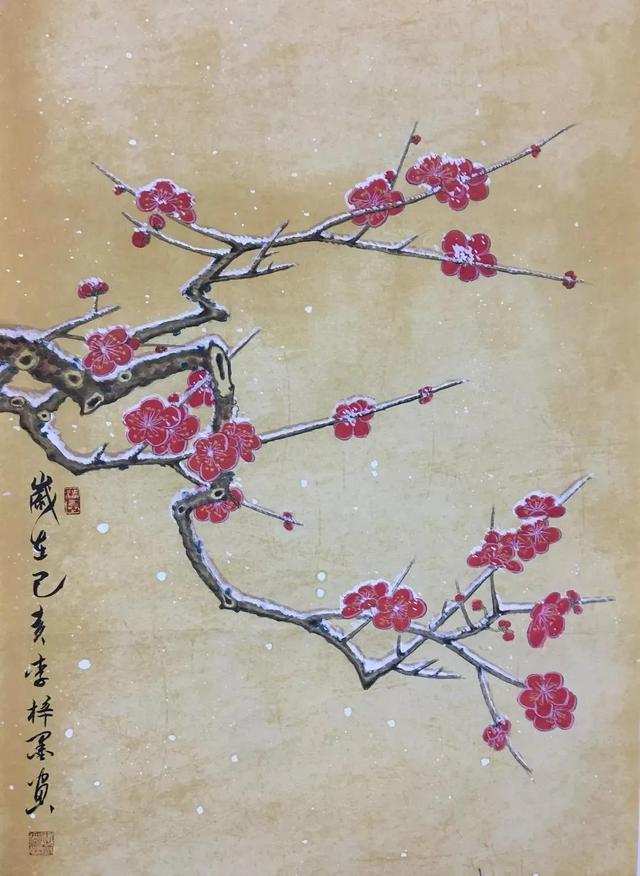 歲在己亥李梓墨寫